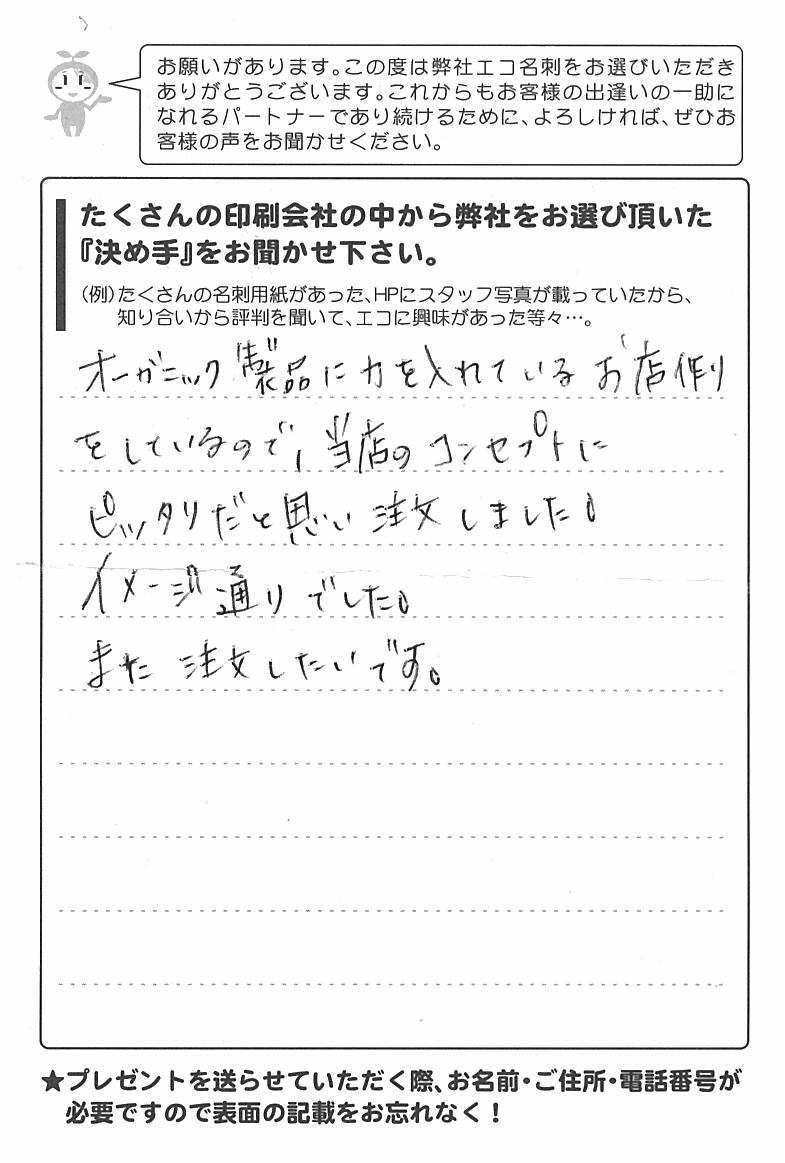 お願いがあります。この度は弊社エコ名刺をお選びいただき
ありがとうございます。これからもお客様の出逢いの一助に
なれるパートナーであり続けるために、よろしければ、ぜひお
客様の声をお聞かせください。
たくさんの印刷会社の中から弊社をお選び頂いた
『決め手』をお聞かせ下さい。
（例）たくさんの名刺用紙があった、HPにスタッフ写真が載っていたから、
知り合いから評判を聞いて、エコに興味があった等々…。
オーガニック製品に力を入れているお店作り
をしているので、当店のコンセプトに
ピッタリだと思い注文しました。
イメージ通りでした。
また注文したいです。
★プレゼントを送らせていただく際、お名前・ご住所・電話番号が
必要ですので表面の記載をお忘れなく！